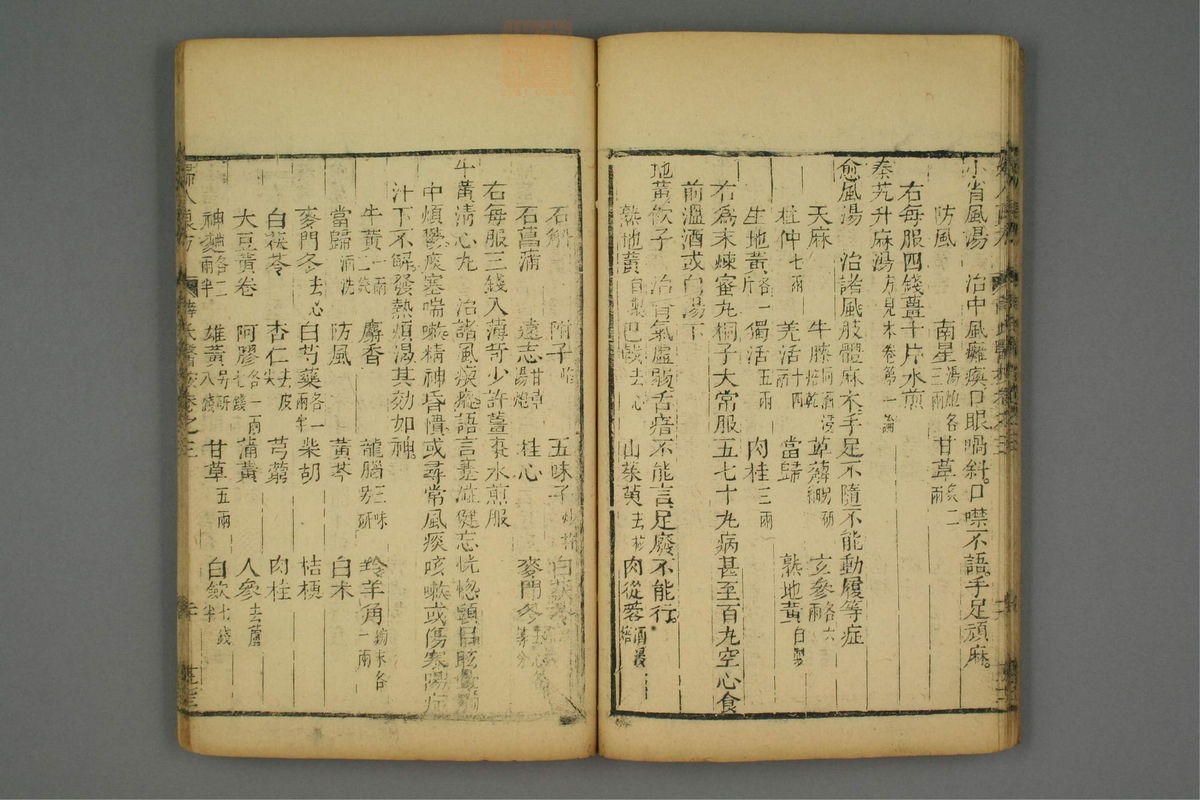 小省風湯　治中風癱瘓口眼喎斜口噤不語手足頑麻
防風　南星湯炮各三兩　甘草炙二兩
右每服四錢薑十片水煎
秦艽升麻湯方見本卷第一論
愈風湯　治諸風肢體麻木手足不隨不能動履等症
天麻　牛膝同酒浸焙乾　萆薢另研細　玄參各六兩
杜仲七兩　羌活十四兩　當歸　熟地黃自製
生地黃各一斤　獨活五兩　肉桂三兩
右為末煉蜜丸桐子大常服五七十丸病甚至百丸空心食
前溫酒或白湯下
地黃飲子　治腎氣虛弱舌瘖不能言足廢不能行
熟地黃自製　巴戟去心　山茱萸去核　肉從蓉酒浸焙
石斛　附子炮　五味子　白茯苓
石菖蒲　遠志甘草湯炮　桂心　麥門冬等分
右每服三錢入薄荷少許薑棗水煎服
牛黃清心丸　治諸風瘓瘲語言蹇澁健忘恍惚頭目眩
中煩鬱痰塞喘嗽精神昏憒或尋常風痰咳嗽或傷寒陽症
汁下不解發熱煩渴其効如神
牛黃一兩二錢　麝香　龍腦三味另研　羚羊角鎊末各一兩
當歸酒洗　防風　黃芩　白朮
麥門冬去心　白芍藥各一兩半　柴胡　桔梗
白茯苓　杏仁去皮尖　芎藭　肉桂
大豆黃卷　阿膠各一兩七錢　蒲黃　人參去蘆
神麯各二兩半　雄黃另研八錢　甘草五兩　白斂七錢半
婦人良方　薛氏醫按卷之三